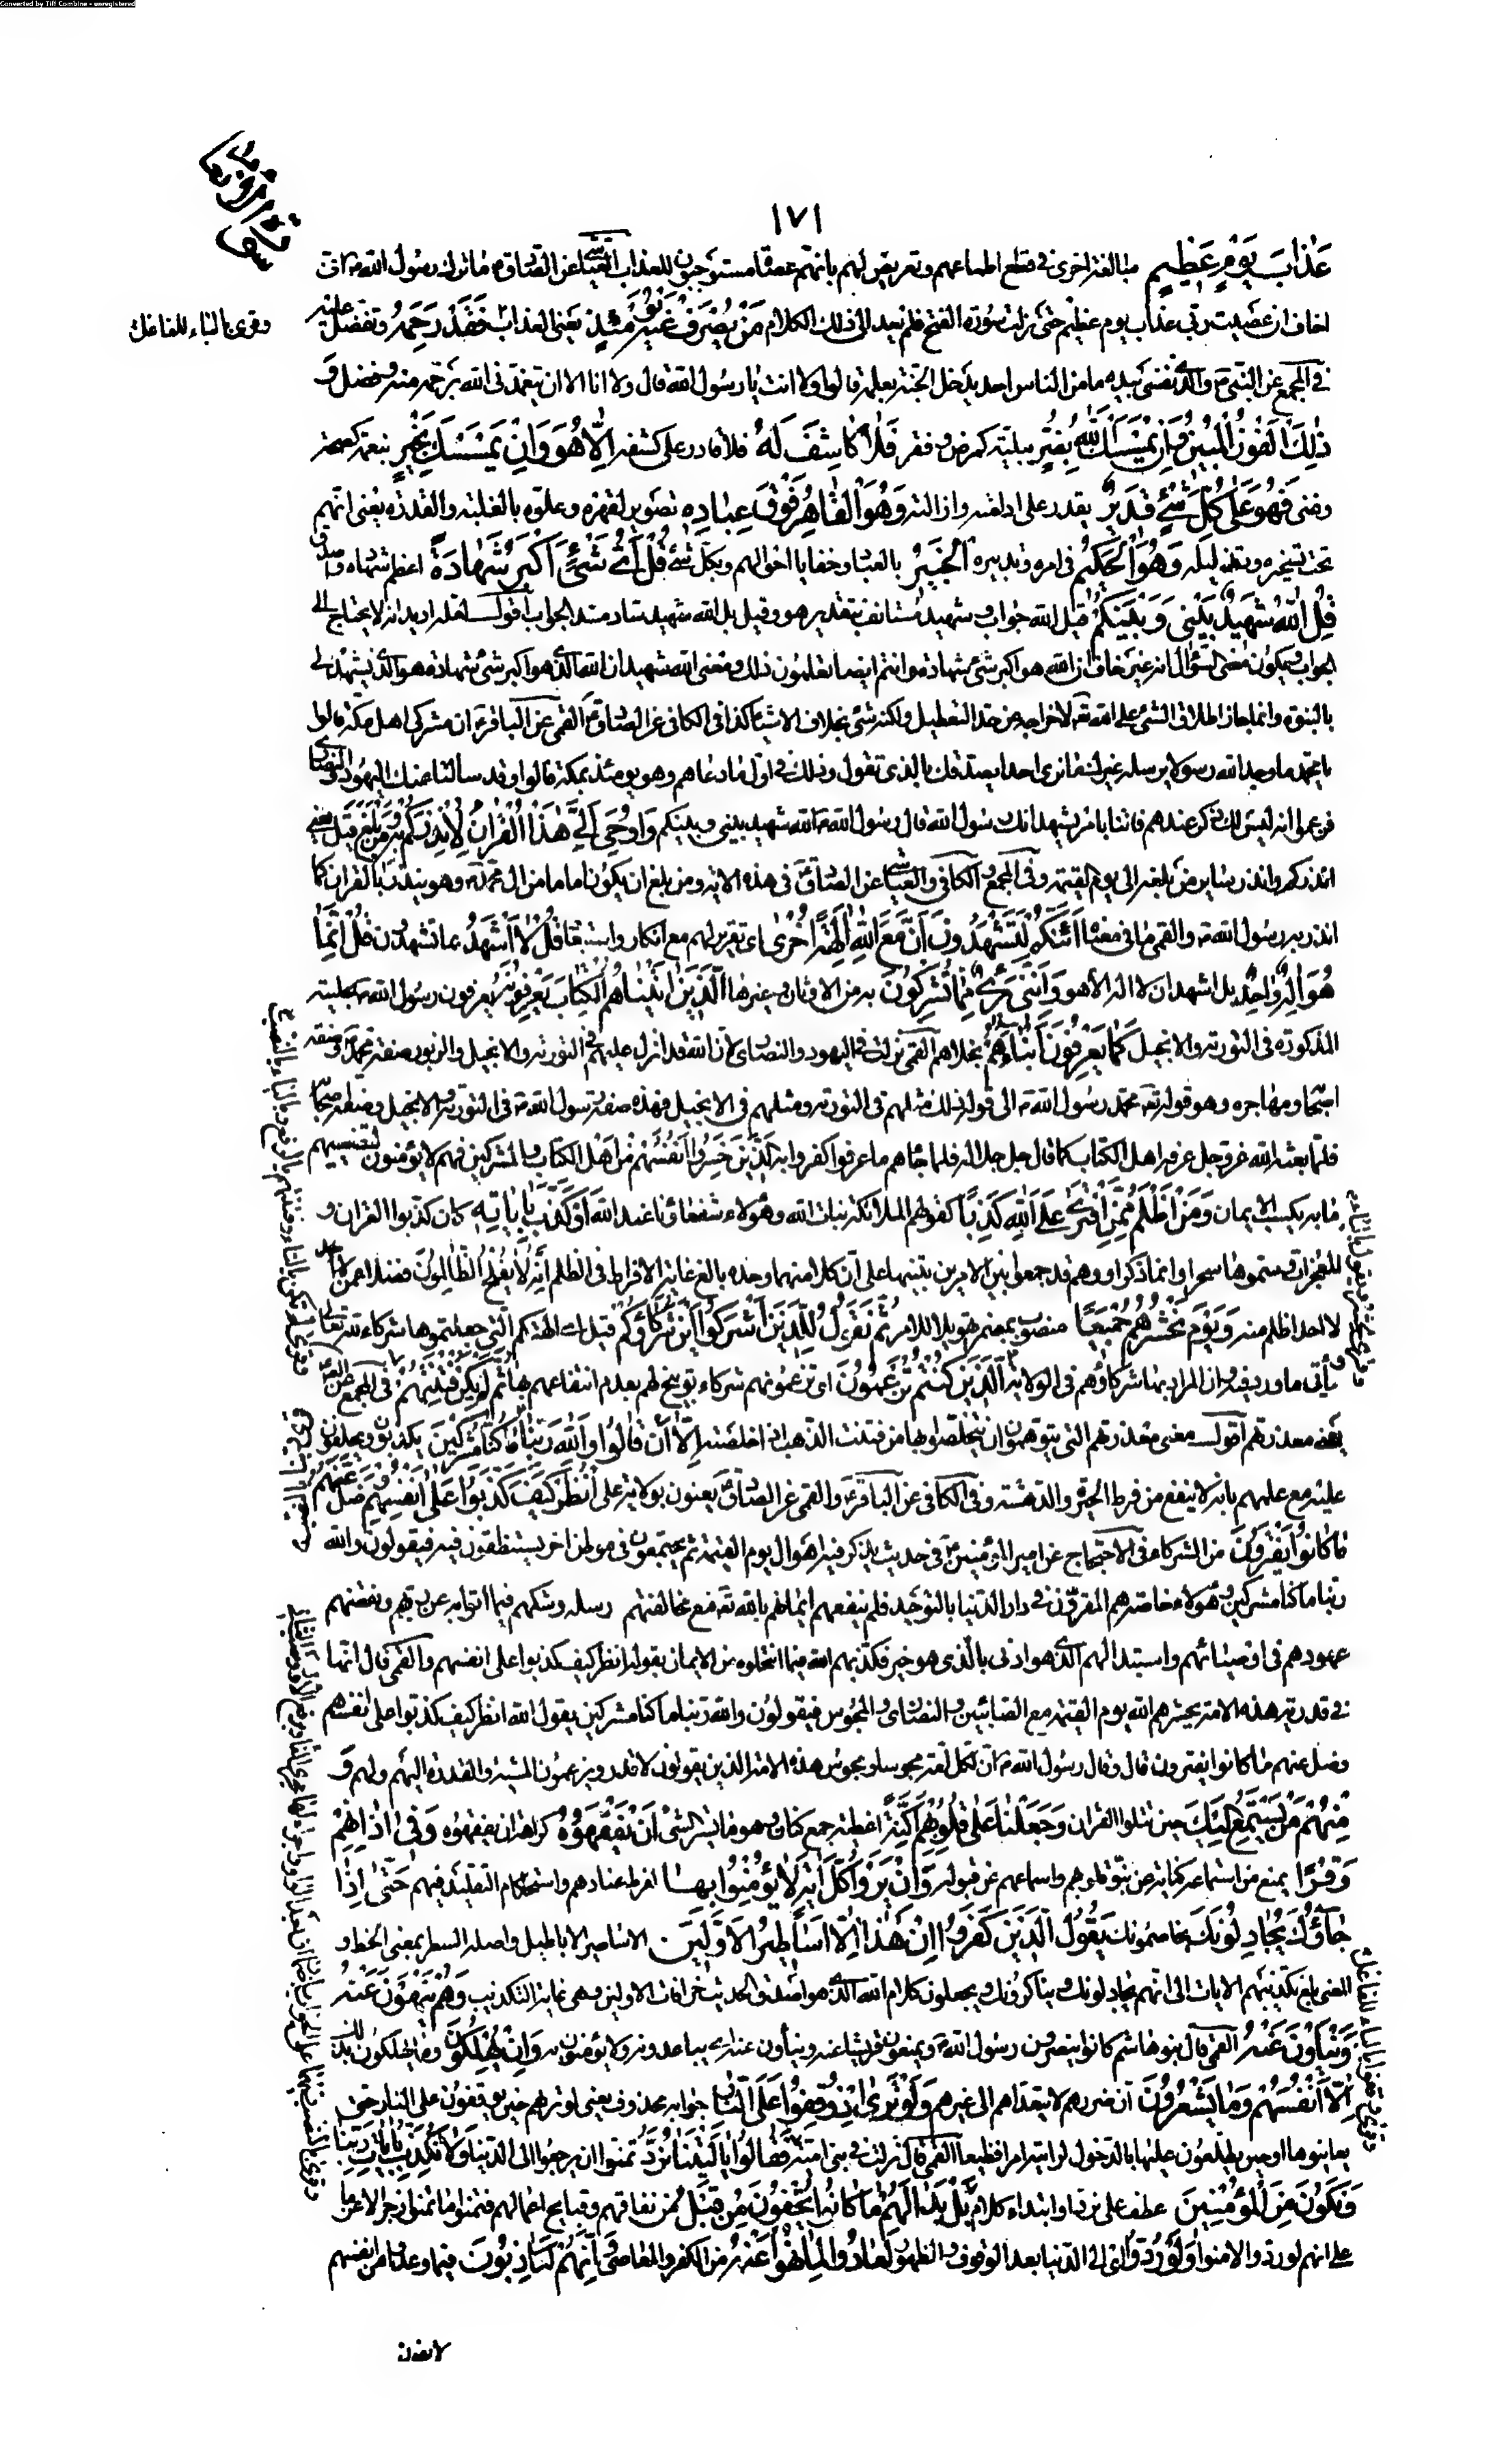 Converted by Tiff Combine - unregistered
١٧١
عَذابَ يَوْمٍ عَظيمٍ مبالغة اخرى في قطع اطماعهم وتعريض لهم بانهم عصاة مستوجبون للعذاب العياشي عن الصادق ما ترك رسول الله
اخاف ان عصيت ربي عذاب يوم عظيم حتى نزلت سورة الفتح فلم يعد الى ذلك الكلام مَنْ يُصْرَفْ عَنْهُ يَوْمَئِذٍ يعني العذاب فَقَدْ رَحِمَهُ وتفضل عليه
وقرئ بالبناء للفاعل
في المجمع عن النبي والذي نفسي بيده ما من الناس احد يدخل الجنة بعمله قالوا ولا انت يا رسول الله قال ولا انا الا ان يتغمدني الله برحمة منه وفضل وَ
ذلِكَ الْفَوْزُ الْمُبينُ وَاِنْ يَمْسَسْكَ اللهُ بِضُرٍّ ببلية كمرض وفقر فَلا كاشِفَ لَهُ فلا قادر على كشفه اِلّا هُوَ وَاِنْ يَمْسَسْكَ بِخَيْرٍ بنعمة كصحة
وغنى فَهُوَ عَلى كُلِّ شَيْءٍ قَديرٌ يقدر على ادامته وازالته وَهُوَ الْقاهِرُ فَوْقَ عِبادِهِ تصوير لقهره وعلوه بالغلبة والقدرة يعني انهم
تحت تسخيره وتذليله وَهُوَ الْحَكيمُ في امره وتدبيره الْخَبيرُ بالعباد وخفايا احوالهم وبكل شيء قُلْ اَيُّ شَيْءٍ اَكْبَرُ شَهادَةً اعظم شهادة واصدق
قُلِ اللهُ شَهيدٌ بَيْني وَبَيْنَكُمْ قيل الله جواب وشهيد مستانف بتقدير هو وقيل بل الله شهيد ساد مسد الجواب اقول لعله اريد انه لا يحتاج الى
الجواب ويكون معنى السؤال انه غير خاف ان الله هو اكبر شيء شهادة وانتم ايضا تعلمون ذلك ومعنى الله شهيد ان الله الذي هو اكبر شيء شهادة هو الذي يشهد لي
بالنبوة وانما جاز اطلاق الشيء على الله تع لاخراجه عن حد التعطيل ولكنه شيء بخلاف الاشياء كذا في الكافي عن الصادق القمي عن الباقر ان مشركي اهل مكة قالوا
يا محمد ما وجد الله رسولا يرسله غيرك ما نرى احدا يصدقك بالذي تقول وذلك في اول ما دعاهم وهو يومئذ بمكة قالوا وقد سالنا عنك اليهود والنصارى
فزعموا انه ليس لك ذكر عندهم فاتنا بامر يشهد انك رسول الله قال رسول الله الله شهيد بيني وبينكم وَاُوحِيَ اِلَيَّ هذَا الْقُرْآنُ لِاُنْذِرَكُمْ بِهِ وَمَنْ بَلَغَ قيل يعني
انذركم وانذر سائر من بلغه الى يوم القيمة وفي المجمع والكافي والعياشي عن الصادق في هذه الاية ومن بلغ ان يكون اماما من ال محمد وهو ينذر بالقران كما
انذر به رسول الله والقمي ما في معناه اَئِنَّكُمْ لَتَشْهَدُونَ اَنَّ مَعَ اللهِ آلِهَةً اُخْرى اي تقرير لهم مع انكار واستبعاد قُلْ لا اَشْهَدُ بما تشهدون قُلْ اِنَّما
هُوَ اِلهٌ واحِدٌ بل اشهد ان لا اله الا هو وَاِنَّني بَريءٌ مِمّا تُشْرِكُونَ به من الاوثان وغيرها اَلَّذينَ آتَيْناهُمُ الْكِتابَ يَعْرِفُونَهُ يعرفون رسول الله بحليته
المذكورة في التورية والانجيل كَما يَعْرِفُونَ اَبْناءَهُمْ بحلاهم القمي نزلت في اليهود والنصارى لان الله قد انزل عليهم في التورية والانجيل والزبور صفة محمد وصفة
اصحابه ومهاجره وهو قوله تع محمد رسول الله الى قوله ذلك مثلهم في التورية ومثلهم في الانجيل فهذه صفة رسول الله في التورية والانجيل وصفة اصحابه
فلما بعثه الله عز وجل عرفه اهل الكتاب كما قال جل جلاله فلما جاءهم ما عرفوا كفروا به اَلَّذينَ خَسِرُوا اَنْفُسَهُمْ من اهل الكتاب والمشركين فهم لا يؤمنون لتضييعهم
ما به يكسب الايمان وَمَنْ اَظْلَمُ مِمَّنِ افْتَرى عَلَى اللهِ كَذِبًا كقولهم الملائكة بنات الله وهؤلاء شفعاؤنا عند الله اَوْ كَذَّبَ بِآياتِهِ كان كذبوا القران و
المعجزات وسموها سحرا وانما ذكر او وهم قد جمعوا بين الامرين تنبيها على ان كلا منهما وحده بالغ غاية الافراط في الظلم اِنَّهُ لا يُفْلِحُ الظّالِمُونَ فضلا عمن
لا احد اظلم منه وَيَوْمَ نَحْشُرُهُمْ جَميعًا منصوب بمضمر تهويلا للامر ثُمَّ نَقُولُ لِلَّذينَ اَشْرَكُوا اَيْنَ شُرَكاؤُكُمُ قيل اي الهتكم التي جعلتموها شركاء لله تعالى
وياتي ما ورد فيه ان المراد بها شركاؤهم في الولاية الَّذينَ كُنْتُمْ تَزْعُمُونَ اي تزعمونهم شركاء توبيخ لهم بعدم انتفاعهم بها ثُمَّ لَمْ تَكُنْ فِتْنَتُهُمْ في المجمع عن
يعني معذرتهم اقول معنى معذرتهم التي يتوهمون ان يتخلصوا بها من فتنت الذهب اذا خلصته اِلّا اَنْ قالُوا وَاللهِ رَبِّنا ما كُنّا مُشْرِكينَ يكذبون ويحلفون
عليه مع علمهم بانه لا ينفع من فرط الحيرة والدهشة وفي الكافي عن الباقر والقمي عن الصادق يعنون بولاية علي اُنْظُرْ كَيْفَ كَذَبُوا عَلى اَنْفُسِهِمْ وَضَلَّ عَنْهُمْ
ما كانُوا يَفْتَرُونَ من الشركاء في الاحتجاج عن امير المؤمنين في حديث يذكر فيه اهوال يوم القيمة ثم يجتمعون في موطن اخر يستنطقون فيه فيقولون والله
ربنا ما كنا مشركين وهؤلاء خاصة هم المقرون في دار الدنيا بالتوحيد فلم ينفعهم ايمانهم بالله تع مع مخالفتهم رسله وشكهم فيما اتوا به عن ربهم ونقضهم
عهودهم في اوصيائهم واستبدالهم الذي هو ادنى بالذي هو خير فكذبهم الله فيما انتحلوه من الايمان بقوله انظر كيف كذبوا على انفسهم والقمي قال انها
في قدرية هذه الامة يحشرهم الله يوم القيمة مع الصابئين والنصارى والمجوس فيقولون والله ربنا ما كنا مشركين يقول الله انظر كيف كذبوا على انفسهم
وضل عنهم ما كانوا يفترون قال وقال رسول الله ان لكل امة مجوسا ومجوس هذه الامة الذين يقولون لا قدر ويزعمون ان المشية والقدرة اليهم ولهم وَ
مِنْهُمْ مَنْ يَسْتَمِعُ اِلَيْكَ حين تتلوا القران وَجَعَلْنا عَلى قُلُوبِهِمْ اَكِنَّةً اغطية جمع كنان وهو ما يستر الشيء اَنْ يَفْقَهُوهُ كراهة ان يفقهوه وَفي آذانِهِمْ
وَقْرًا يمنع من استماعه كناية عن نبو قلوبهم واسماعهم عن قبوله وَاِنْ يَرَوْا كُلَّ آيَةٍ لا يُؤْمِنُوا بِها لفرط عنادهم واستحكام التقليد فيهم حَتّى اِذا
جاؤُكَ يُجادِلُونَكَ يخاصمونك يَقُولُ الَّذينَ كَفَرُوا اِنْ هذا اِلّا اَساطيرُ الْاَوَّلينَ الاساطير الاباطيل واصله السطر بمعنى الخط و
المعنى بلغ تكذيبهم الايات الى انهم يجادلونك ويناكرونك ويجعلون كلام الله الذي هو اصدق الحديث خرافات الاولين وهي غاية التكذيب وَهُمْ يَنْهَوْنَ عَنْهُ
وَيَنْأَوْنَ عَنْهُ القمي قال بنو هاشم كانوا ينصرون رسول الله ويمنعون قريشا عنه وينأون عنه اي يباعدونه ولا يؤمنون به وَاِنْ يُهْلِكُونَ وما يهلكون بذلك
اِلّا اَنْفُسَهُمْ وَما يَشْعُرُونَ ان ضررهم لا يتعداهم الى غيرهم وَلَوْ تَرى اِذْ وُقِفُوا عَلَى النّارِ جوابه محذوف يعني لو تراهم حين يوقفون على النار حتى
يعاينوها او حين يطلعون عليها بالدخول لرايت امرا فظيعا القمي قال نزلت في بني امية فَقالُوا يا لَيْتَنا نُرَدُّ تمنوا ان يرجعوا الى الدنيا وَلا نُكَذِّبَ بِآياتِ رَبِّنا
وَنَكُونَ مِنَ الْمُؤْمِنينَ عطف على نرد او ابتداء كلام بَلْ بَدا لَهُمْ ما كانُوا يُخْفُونَ مِنْ قَبْلُ من نفاقهم وقبايح اعمالهم فتمنوا ما تمنوا ضجرا لا عزما
على انهم لو ردوا لامنوا وَلَوْ رُدُّوا الى الدنيا بعد الوقوف والظهور لَعادُوا لِما نُهُوا عَنْهُ من الكفر والمعاصي وَاِنَّهُمْ لَكاذِبُونَ فيما وعدوا من انفسهم